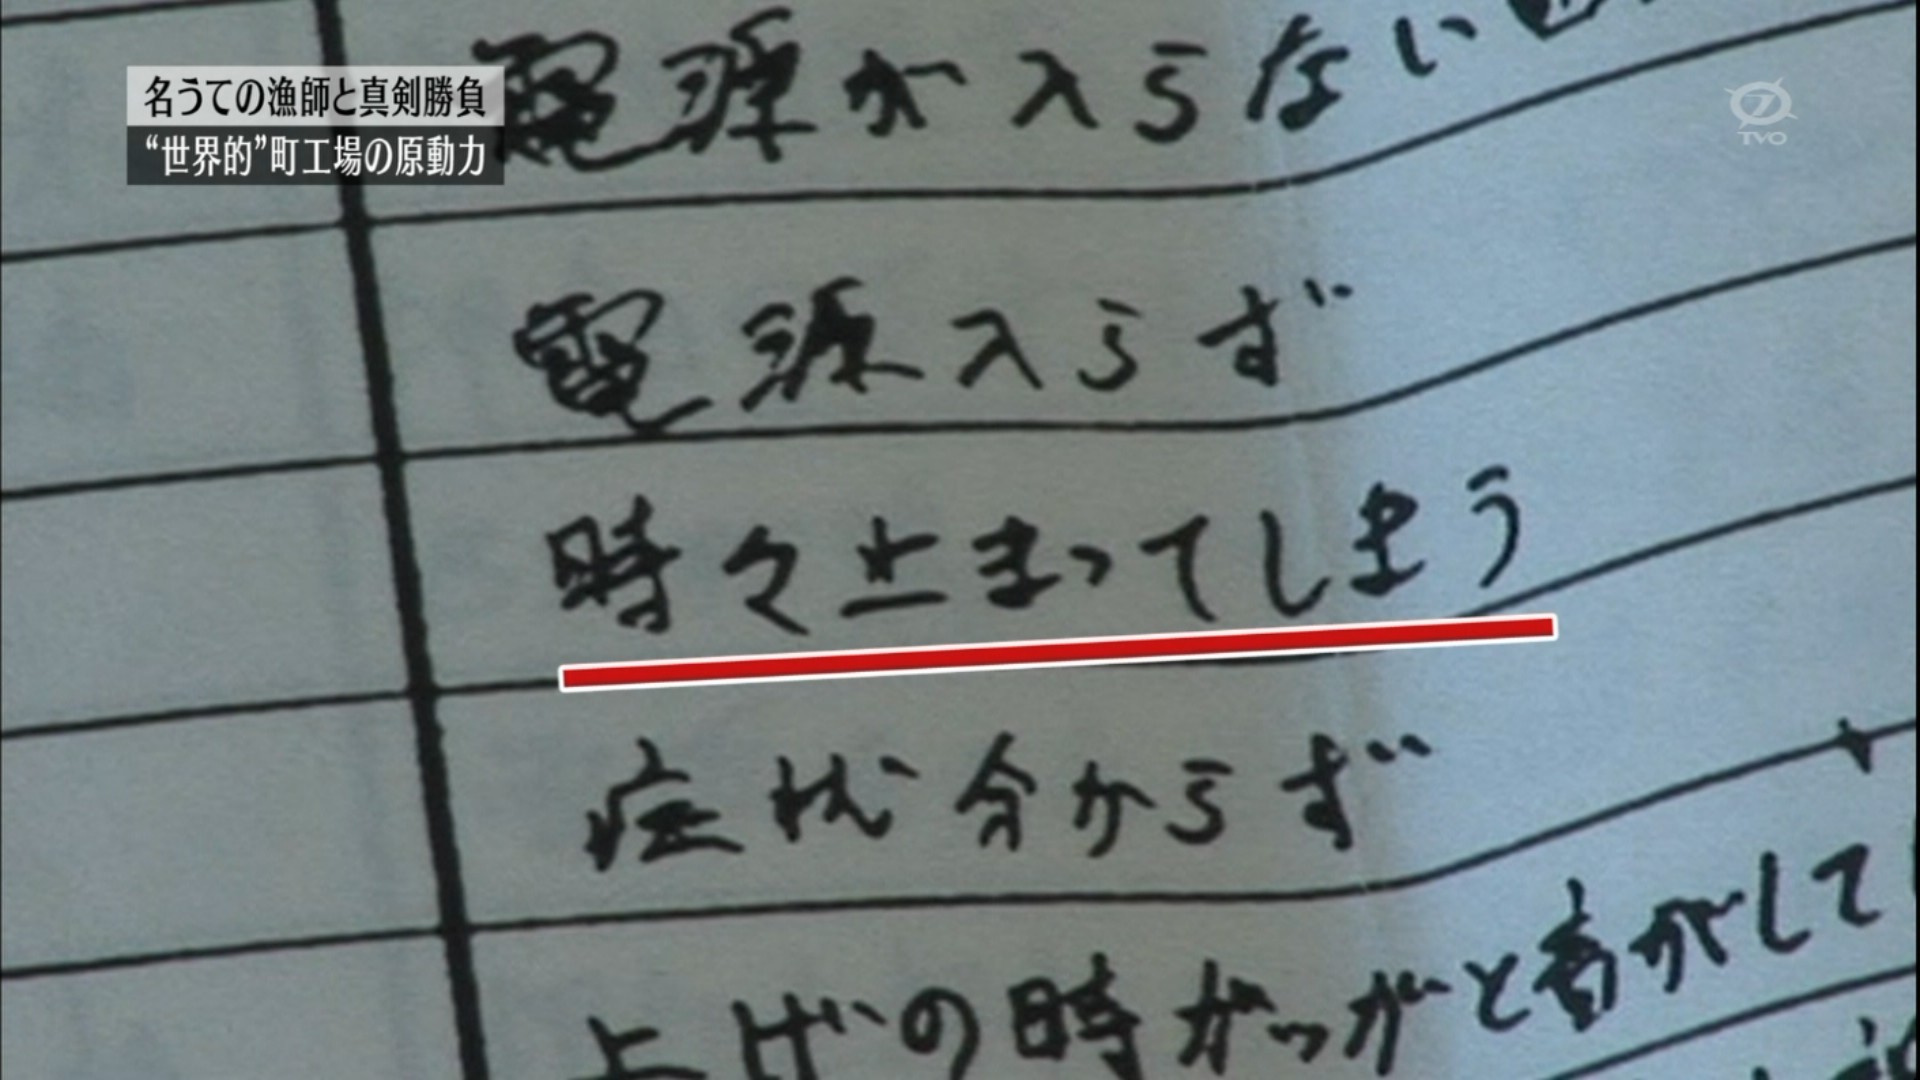 名うての漁師と真剣勝負
“世界的”町工場の原動力
TVO
電源が入らない
電源入らず
時々止まってしまう
症状分からず
上げの時ガッガッと音がして